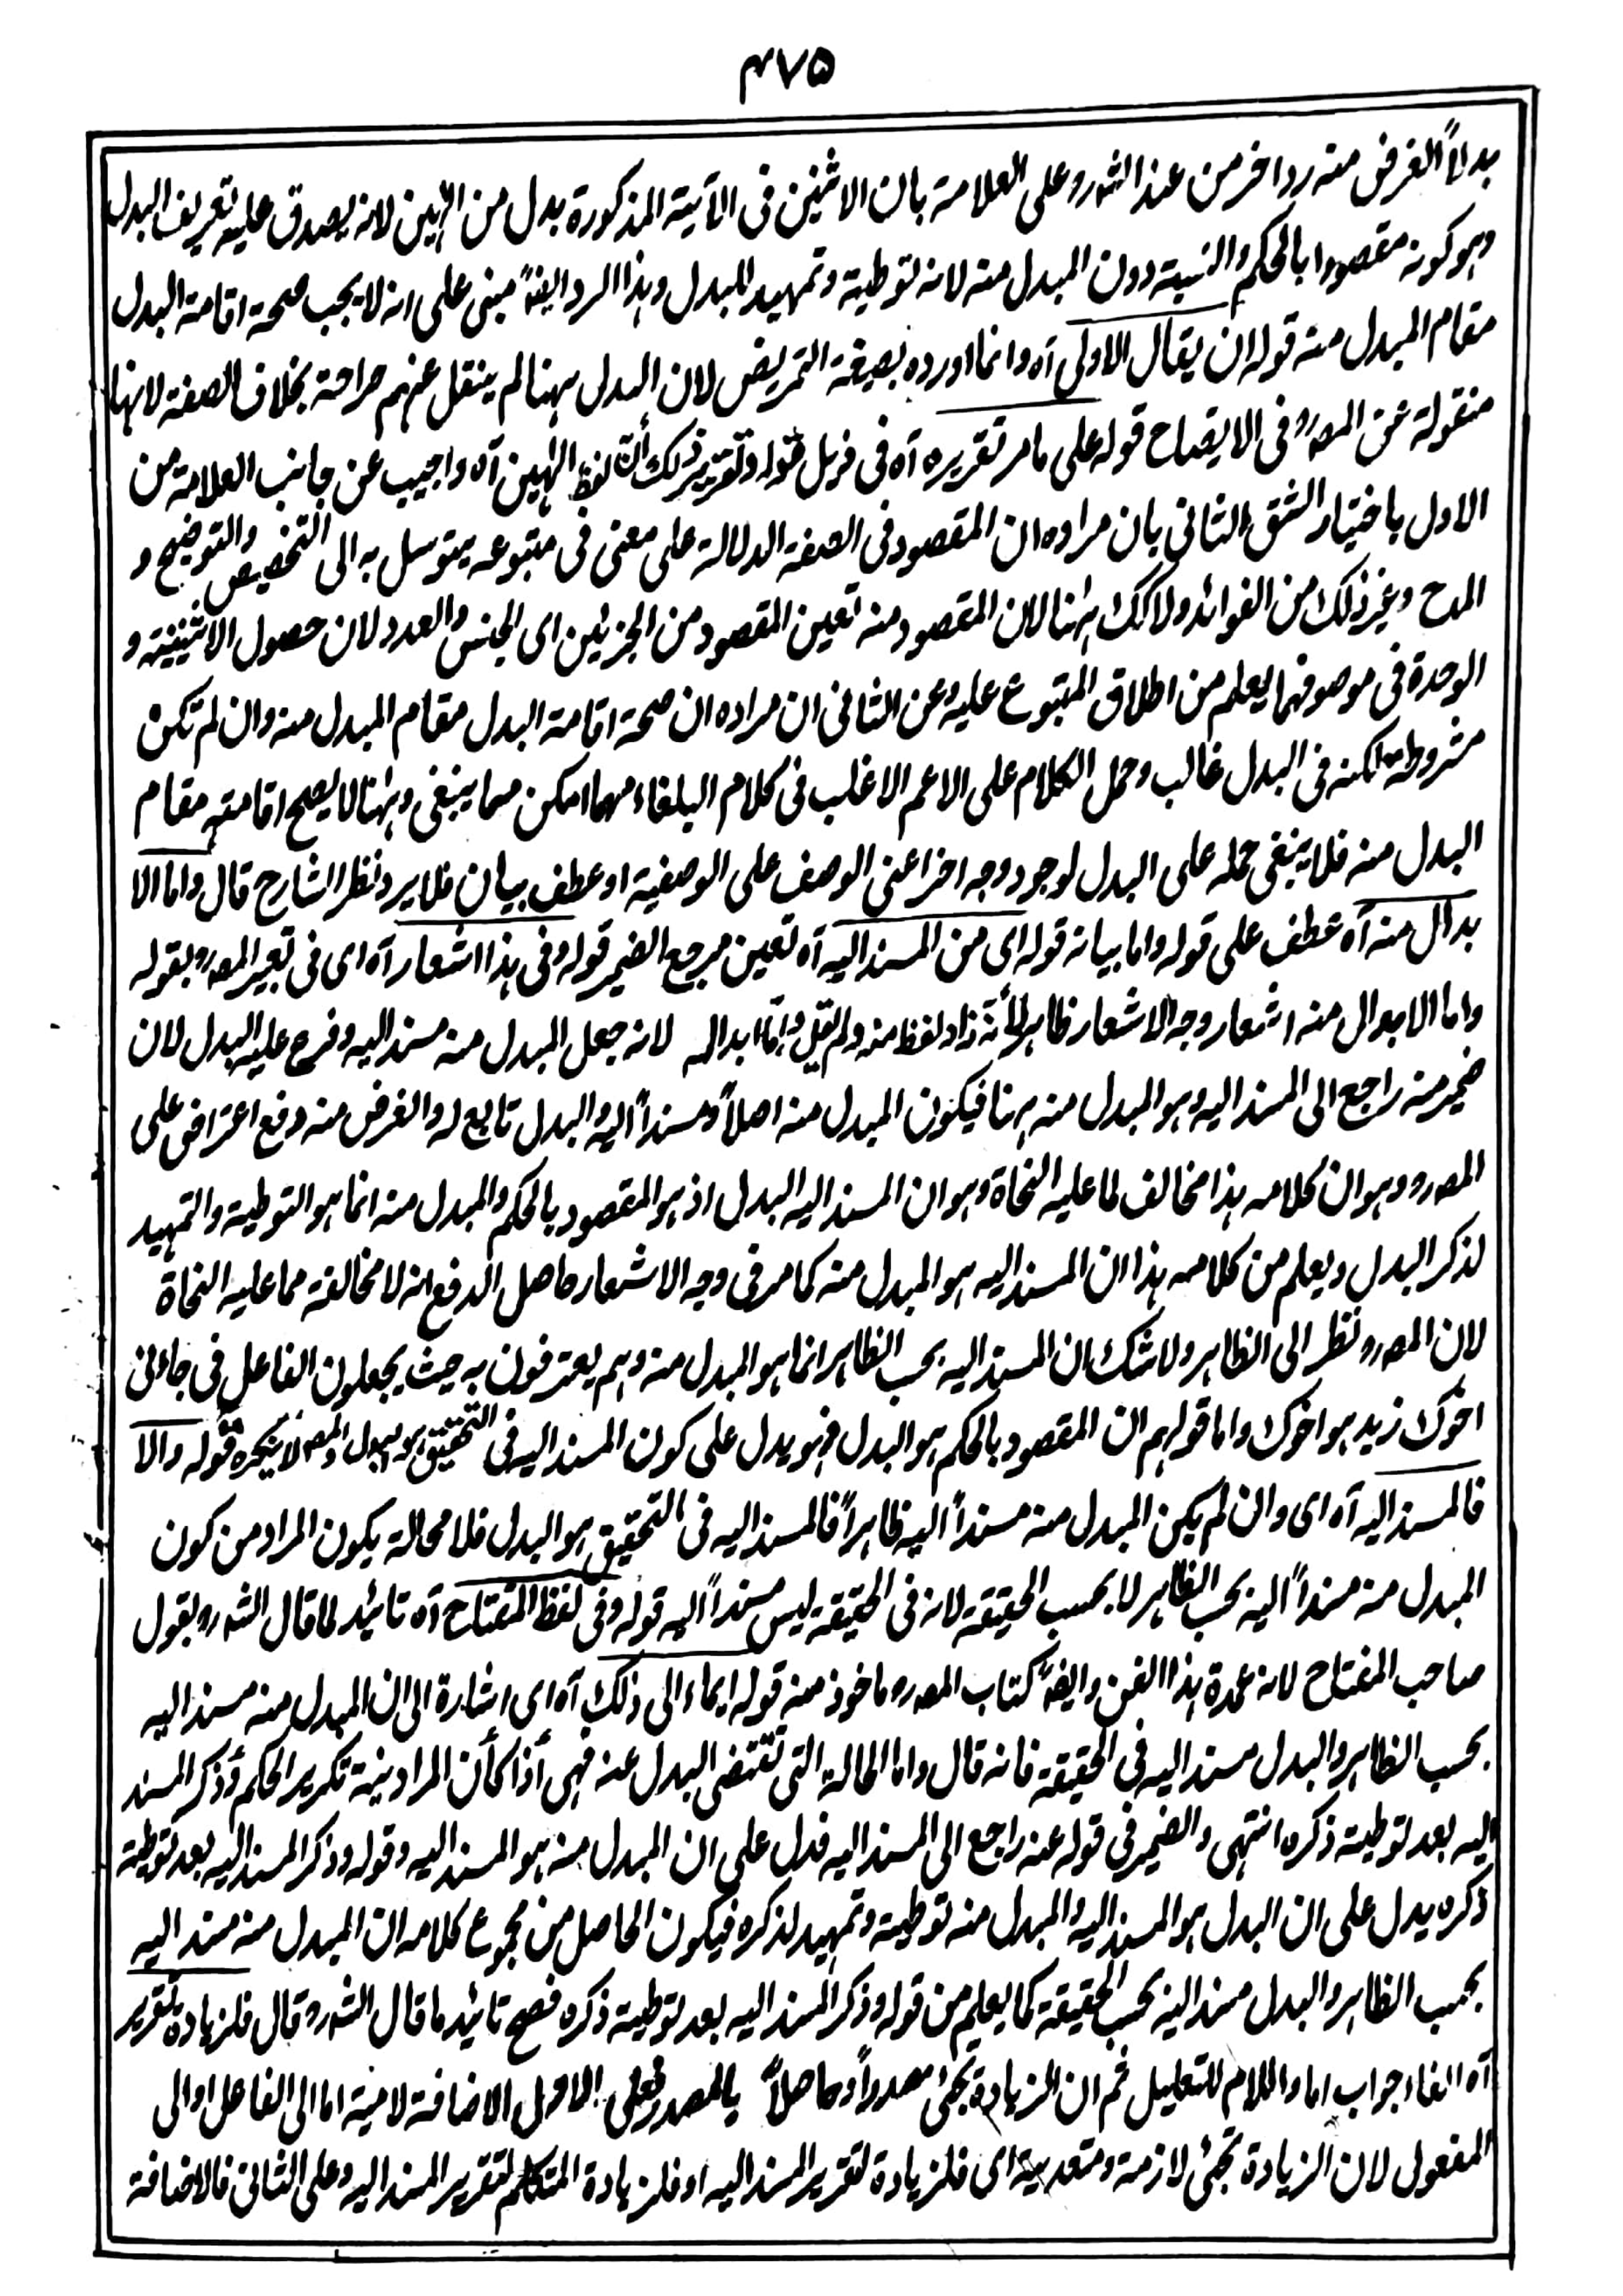 ٤٧٥
بدلاً الغرض منه رد اخر من عند الشه رو على العلامة بان الاثنين فى الآية المذكورة بدل من الٰهين لانه يصدق عليه تعريف البدل
وهو كونه مقصودا بالحكم والنسبة دون المبدل منه لانه توطية وتمهيد للبدل وهذا الرد ايضهً مبنى على انه لا يجب صحة اقامة البدل
مقام المبدل منه قوله ان يقال الاولى آه وانما اورده بصيغة التمريض لان البدل ههنا لم ينقل عنهم صراحة بخلاف الصفة لانها
منقولة عن المصه رو فى الايضاح قوله على ما مر تقريره آه فى ذيل قوله وتقرير ذلك أن لفظ الٰهين آه واجيب عن جانب العلامة من
الاول باختيار الشق الثانى بان مراده ان المقصود فى الصفة الدلالة على معنى فى متبوعه يتوسل به الى التخصيص والتوضيح و
المدح وغير ذلك من الفوائد ولا كك هٰهنا لان المقصود منه تعين المقصود من الجزئين اى الجنس والعدد لان حصول الاثنينية و
الوحدة فى موصوفهما يعلم من اطلاق المتبوع عليه وعن الثانى ان مراده ان صحة اقامة البدل مقام المبدل منه وان لم تكن
مشروطة لكنه فى البدل غالب وحمل الكلام على الاعم الاغلب فى كلام البلغاء مهما امكن مما ينبغى وهٰهنا لا يصح اقامته مقام
البدل منه فلا ينبغى حمله على البدل لوجود وجه اخر اعنى الوصف على الوصفية او عطف بيان فلا يرد نظر الشارح قال واما الا
بدال منه آه عطف على قوله واما بيانه قوله اى من المسند اليه آه تعين مرجع الضمير قوله وفى هذا اشعار آه اى فى تعبير المصه رو بقوله
واما الابدال منه اشعار وجه الاشعار ظاهر لأنه زاد لفظ منه ولم يقل وامّا ابداله لانه جعل المبدل منه مسند اليه وفرع عليه البدل لان
ضمير منه راجع الى المسند اليه وهو المبدل منه ههنا فيكون المبدل منه اصلاً ومسنداً اليه والبدل تابع له والغرض منه دفع اعتراض على
المصه رو وهو ان كلامه هذا مخالف لما عليه النحاة وهو ان المسند اليه البدل اذ هو المقصود بالحكم والمبدل منه انما هو التوطية والتمهيد
لذكر البدل ويعلم من كلامه هذا ان المسند اليه هو المبدل منه كما مر فى وجه الاشعار حاصل الدفع انه لا مخالفة مما عليه النحاة
لان المصه رو نظر الى الظاهر ولا شك ان المسند اليه بحسب الظاهر انما هو المبدل منه وهم يعترفون به حيث يجعلون الفاعل فى جاءنى
اخوك زيد هو اخوك واما قولهم ان المقصود بالحكم هو البدل فهو يدل على كون المسند اليه فى التحقيق هو البدل والمصه لا ينكره قوله والا
فالمسند اليه آه اى وان لم يكن المبدل منه مسنداً اليه ظاهراً فالمسند اليه فى التحقيق هو البدل فلا محالة يكون المراد من كون
المبدل منه مسنداً اليه بحسب الظاهر لا بحسب الحقيقة لانه فى الحقيقة ليس مسنداً اليه قوله وفى لفظ المفتاح آه تائيد لما قال الشه رو بقول
صاحب المفتاح لانه عمدة هذا الفن وايضهً كتاب المصه رو ماخوذ منه قوله ايماء الى ذلك آه اى اشارة الى ان المبدل منه مسند اليه
بحسب الظاهر والبدل مسند اليه فى الحقيقة فانه قال واما الحالة التى تقتضى البدل عنه فهى أذا كأن المراد نية تكرير الحكم وذكر المسند
اليه بعد توطية ذكره انتهى والضمير فى قوله عنه راجع الى المسند اليه فدل على ان المبدل منه هو المسند اليه وقوله وذكر المسند اليه بعد توطية
ذكره يدل على ان البدل هو المسند اليه والمبدل منه توطية وتمهيد لذكره فيكون الحاصل من مجموع كلامه ان المبدل منه مسند اليه
بحسب الظاهر والبدل مسند اليه بحسب الحقيقة كما يعلم من قوله وذكر المسند اليه بعد توطية ذكره فصح تائيد ما قال الشه رو قال فلزيادة تقرير
آه الفاء جواب اما واللام للتعليل ثم ان الزيادة تجئ مصدراً وحاصلاً بالمصدر فعلى الاول الاضافة لامية اما الى الفاعل او الى
المفعول لان الزيادة تجئ لازمة ومتعدية اى فلزيادة تقرير المسند اليه او فلزيادة المتكلم لتقرير المسند اليه وعلى الثانى فالاضافة